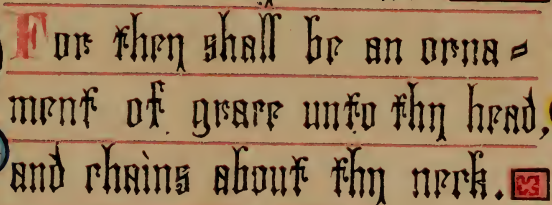 For they shall be an orna=
ment of grace unto thy head,
and chains about thy neck.